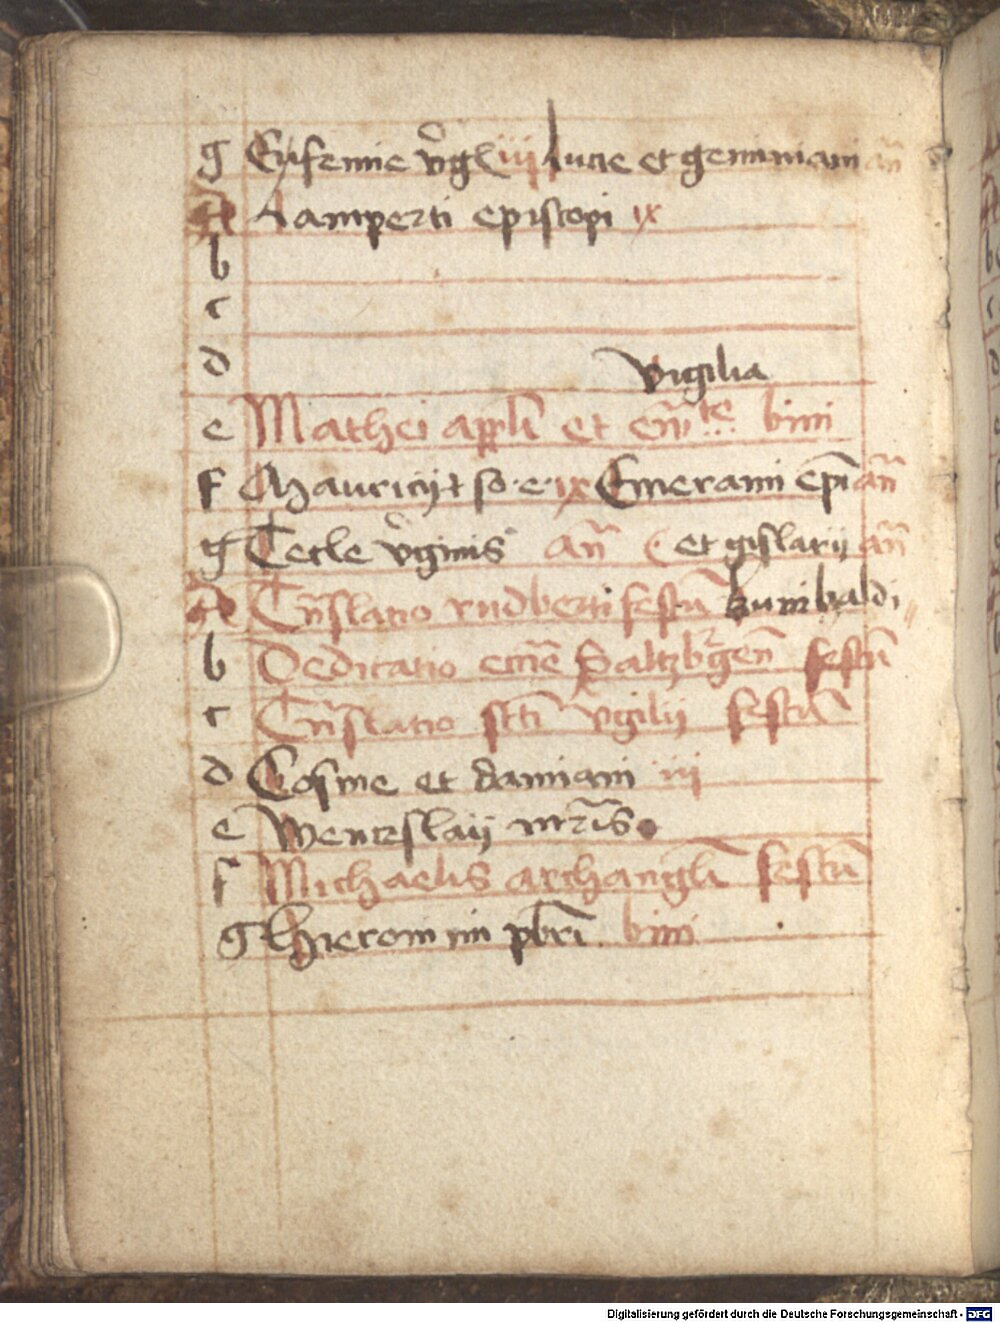 g Eufemie v̄gīs iii Lucie et geminiani an̄
A Lamperti episcopi ix
b
c
d vigilia
e Mathei apl̄i et ew̄te bini
f Mauricij + so·e· ix Emerami ep̄i an̄
g Tecle v̄ginis an̄ et gislarij an̄
A Tn̄slatio rudberti festū kunibaldi
b Dedicatio eccīe Saltzb̄gen̄ festū
c Tn̄slatio sc̄ti v̄gilij festū
d Cosme et damiani iii
e Wenczslaij mr̄is
f Michaelis archangl̄i festū
g Hieronimi pb̄ri bini
Digitalisierung gefördert durch die Deutsche Forschungsgemeinschaft - DFG